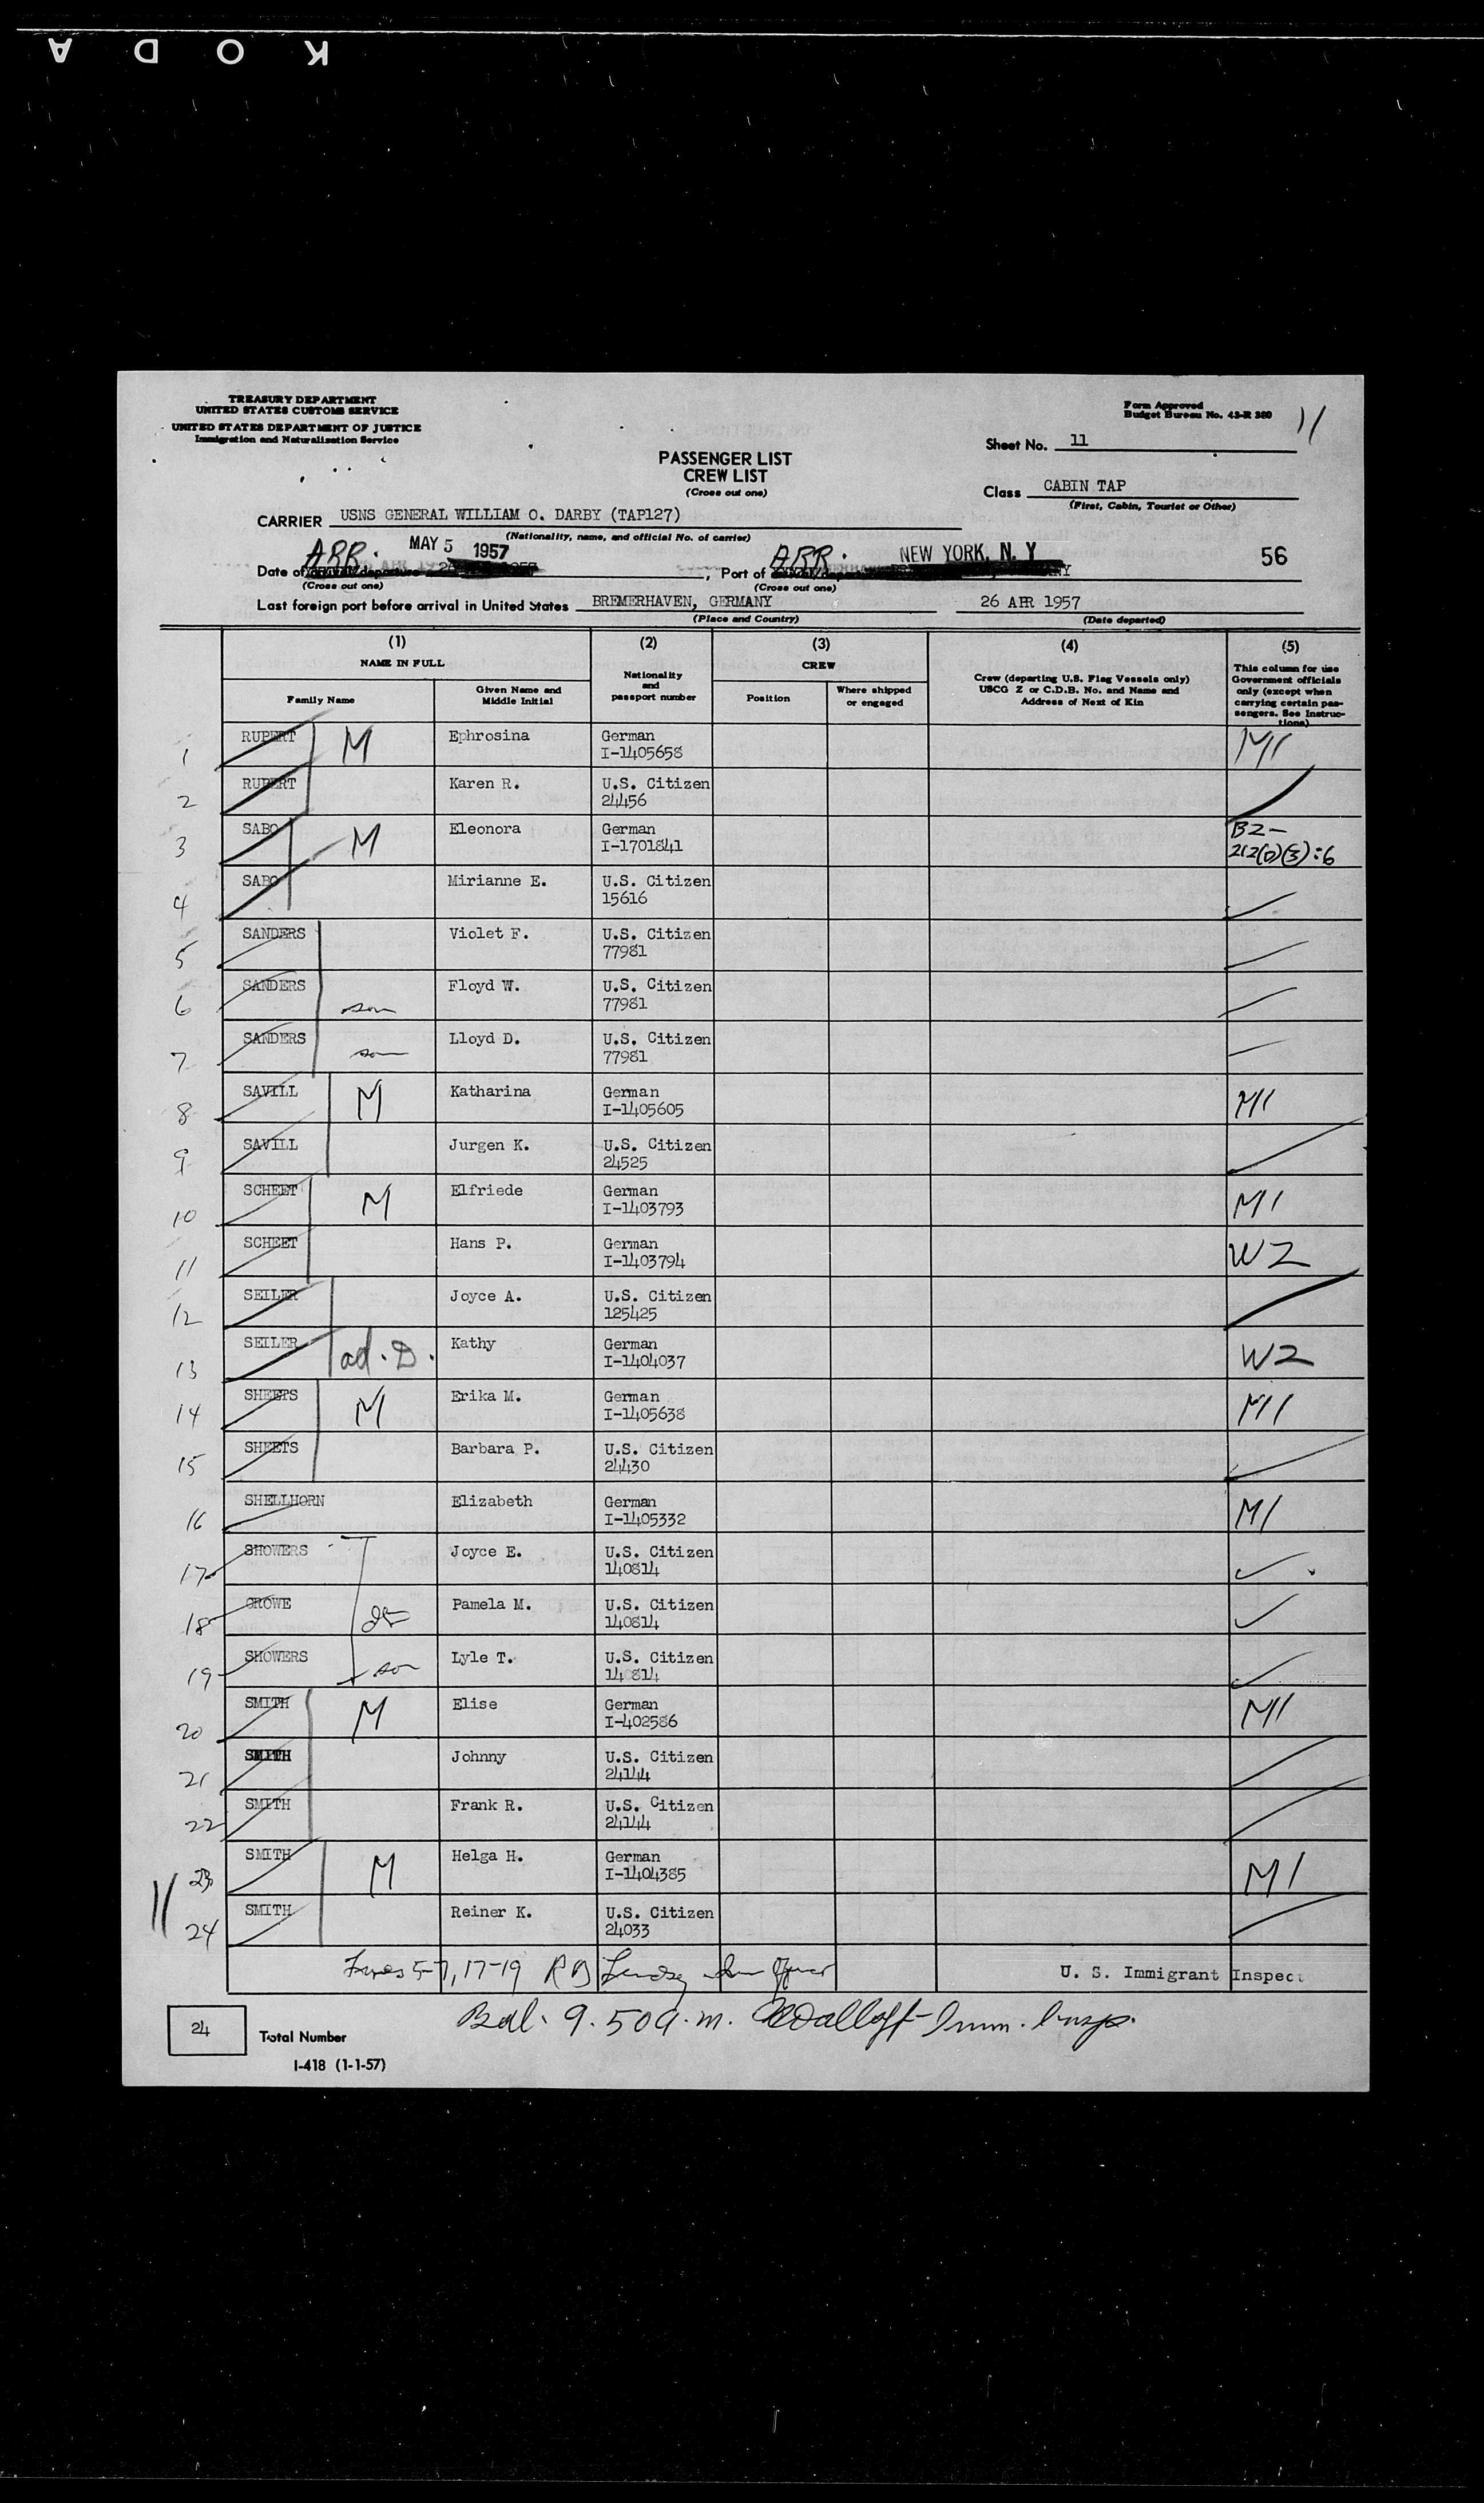 KODA
TREASURY DEPARTMENT
UNITED STATES CUSTOMS SERVICE
UNITED STATES DEPARTMENT OF JUSTICE
Immigration and Naturalization Service
Form Approved
Budget Bureau No. 43-R 380
11
Sheet No. 11
PASSENGER LIST
CREW LIST
(Cross out one)
Class CABIN TAP
(First, Cabin, Tourist or Other)
CARRIER USNS GENERAL WILLIAM O. DARBY (TAP127)
(Nationality, name, and official No. of carrier)
ARR. MAY 5 1957 ARR. NEW YORK, N. Y 56
Date of arrival/departure , Port of
(Cross out one) (Cross out one)
Last foreign port before arrival in United States BREMERHAVEN, GERMANY 26 APR 1957
(Place and Country) (Date departed)
(1) (2) (3) (4) (5)
NAME IN FULL Nationality and passport number CREW Crew (departing U.S. Flag Vessels only) USCG Z or C.D.B. No. and Name and Address of Next of Kin This column for use Government officials only (except when carrying certain passengers. See Instructions)
Family Name Given Name and Middle Initial Position Where shipped or engaged
1 RUPERT M Ephrosina German M1
I-1405658
2 RUPERT Karen R. U.S. Citizen
24456
3 SABO M Eleonora German B2-
I-1701841 212(D)(3):6
4 SABO Mirianne E. U.S. Citizen
15616
5 SANDERS Violet F. U.S. Citizen
77981
6 SANDERS son Floyd W. U.S. Citizen
77981
7 SANDERS son Lloyd D. U.S. Citizen
77981
8 SAVILL M Katharina German M1
I-1405605
9 SAVILL Jurgen K. U.S. Citizen
24525
10 SCHEET M Elfriede German M1
I-1403793
11 SCHEET Hans P. German W2
I-1403794
12 SEILER Joyce A. U.S. Citizen
125425
13 SEILER ad. D. Kathy German W2
I-1404037
14 SHEETS M Erika M. German M1
I-1405638
15 SHEETS Barbara P. U.S. Citizen
24430
16 SHELLHORN Elizabeth German M1
I-1405332
17 SHOWERS Joyce E. U.S. Citizen
140814
18 CROWE Pamela M. U.S. Citizen
140814
19 SHOWERS son Lyle T. U.S. Citizen
14 814
20 SMITH M Elise German M1
I-402586
21 SMITH Johnny U.S. Citizen
24144
22 SMITH Frank R. U.S. Citizen
24144
23 SMITH M Helga H. German M1
I-1404385
11
24 SMITH Reiner K. U.S. Citizen
24033
5-7, 17-19 U. S. Immigrant Inspec
Bal. 9.50 a.m. Imm. Insp.
24 Total Number
I-418 (1-1-57)